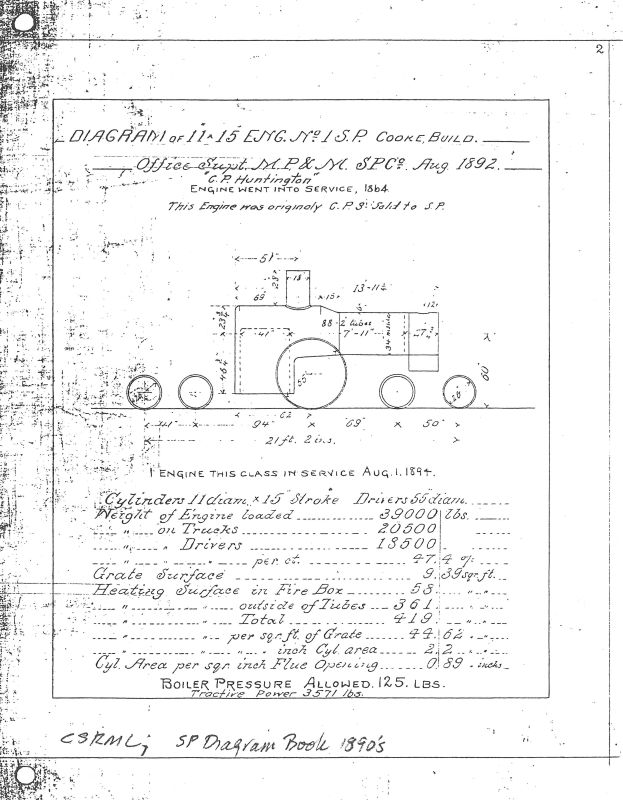 2
DIAGRAM OF 11 x 15 ENG. No 1 S.P. COOKE, BUILD.
Office Supt. M.P. & M. S P Co. Aug 1892.
"C.P. Huntington"
ENGINE WENT INTO SERVICE, 1864
This Engine was originaly C.P 3. Sold to S.P.
51"
18"
13'-11½
69" 15" 12"
88-2" tubes
41" 7'-11"
34 inside
55"
60"
62"
41" x 94" x 69" x 50"
21 ft. 2 ins.
1 ENGINE THIS CLASS IN SERVICE AUG. 1. 1894.
Cylinders 11 diam. x 15" Stroke Drivers 55 diam.
Weight of Engine loaded 39000 lbs.
" on Trucks 20500
" " Drivers 18500
" " per ct. 47.4 %
Grate Surface 9.39 sqr. ft.
Heating Surface in Fire Box 58. " "
" " outside of Tubes 361. " "
" " Total 419. " "
" " per sqr. ft. of Grate 44.62 " "
" " " inch Cyl. area 2.2 " "
Cyl. Area per sqr. inch Flue Opening 0.89 " inchs
BOILER PRESSURE ALLOWED. 125. LBS.
Tractive Power 3571 lbs.
CSRML; SP Diagram Book 1890's